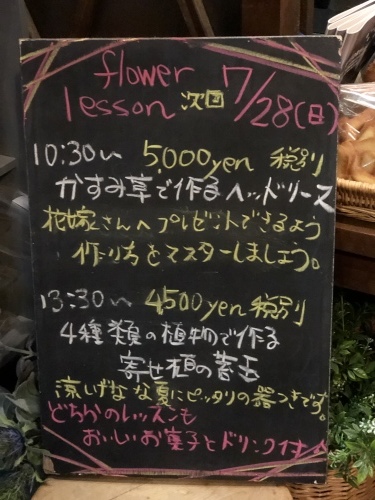 flower
lesson 次回 7/28(日)
10:30〜 5,000yen 税別
かすみ草で作るヘッドリース
花嫁さんへプレゼントできるよう
作り方をマスターしましょう。
13:30〜 4500yen 税別
4種類の植物で作る
寄せ植の苔玉
涼しげな夏にピッタリの器つきです。
どちらのレッスンも
おいしいお菓子とドリンク付